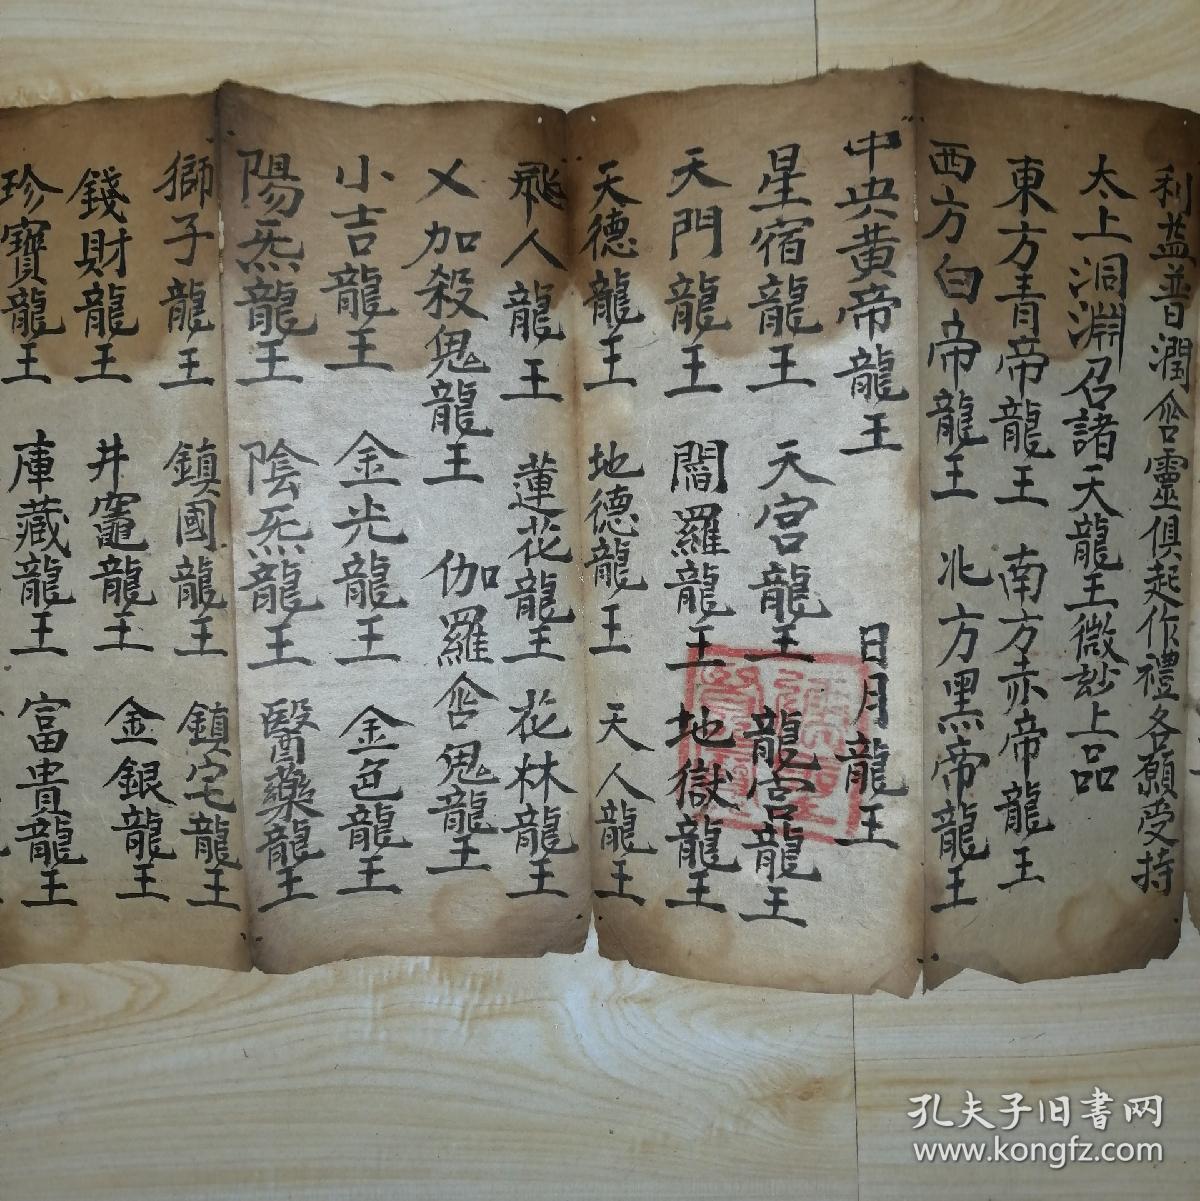 利益普潤含靈俱起作禮各願受持
太上洞淵召諸天龍王微玅上品
東方青帝龍王 南方赤帝龍王
西方白帝龍王 北方黑帝龍王
中央黃帝龍王 日月龍王
星宿龍王 天宮龍王 龍宮龍王
天門龍王 閻羅龍王 地獄龍王
天德龍王 地德龍王 天人龍王
飛人龍王 蓮花龍王 花林龍王
乂加殺鬼龍王 伽羅含鬼龍王
小吉龍王 金光龍王 金色龍王
陽炁龍王 陰炁龍王 醫藥龍王
獅子龍王 鎮國龍王 鎮宅龍王
錢財龍王 井竈龍王 金銀龍王
珍寶龍王 庫藏龍王 富貴龍王
孔夫子旧书网
www.kongfz.com